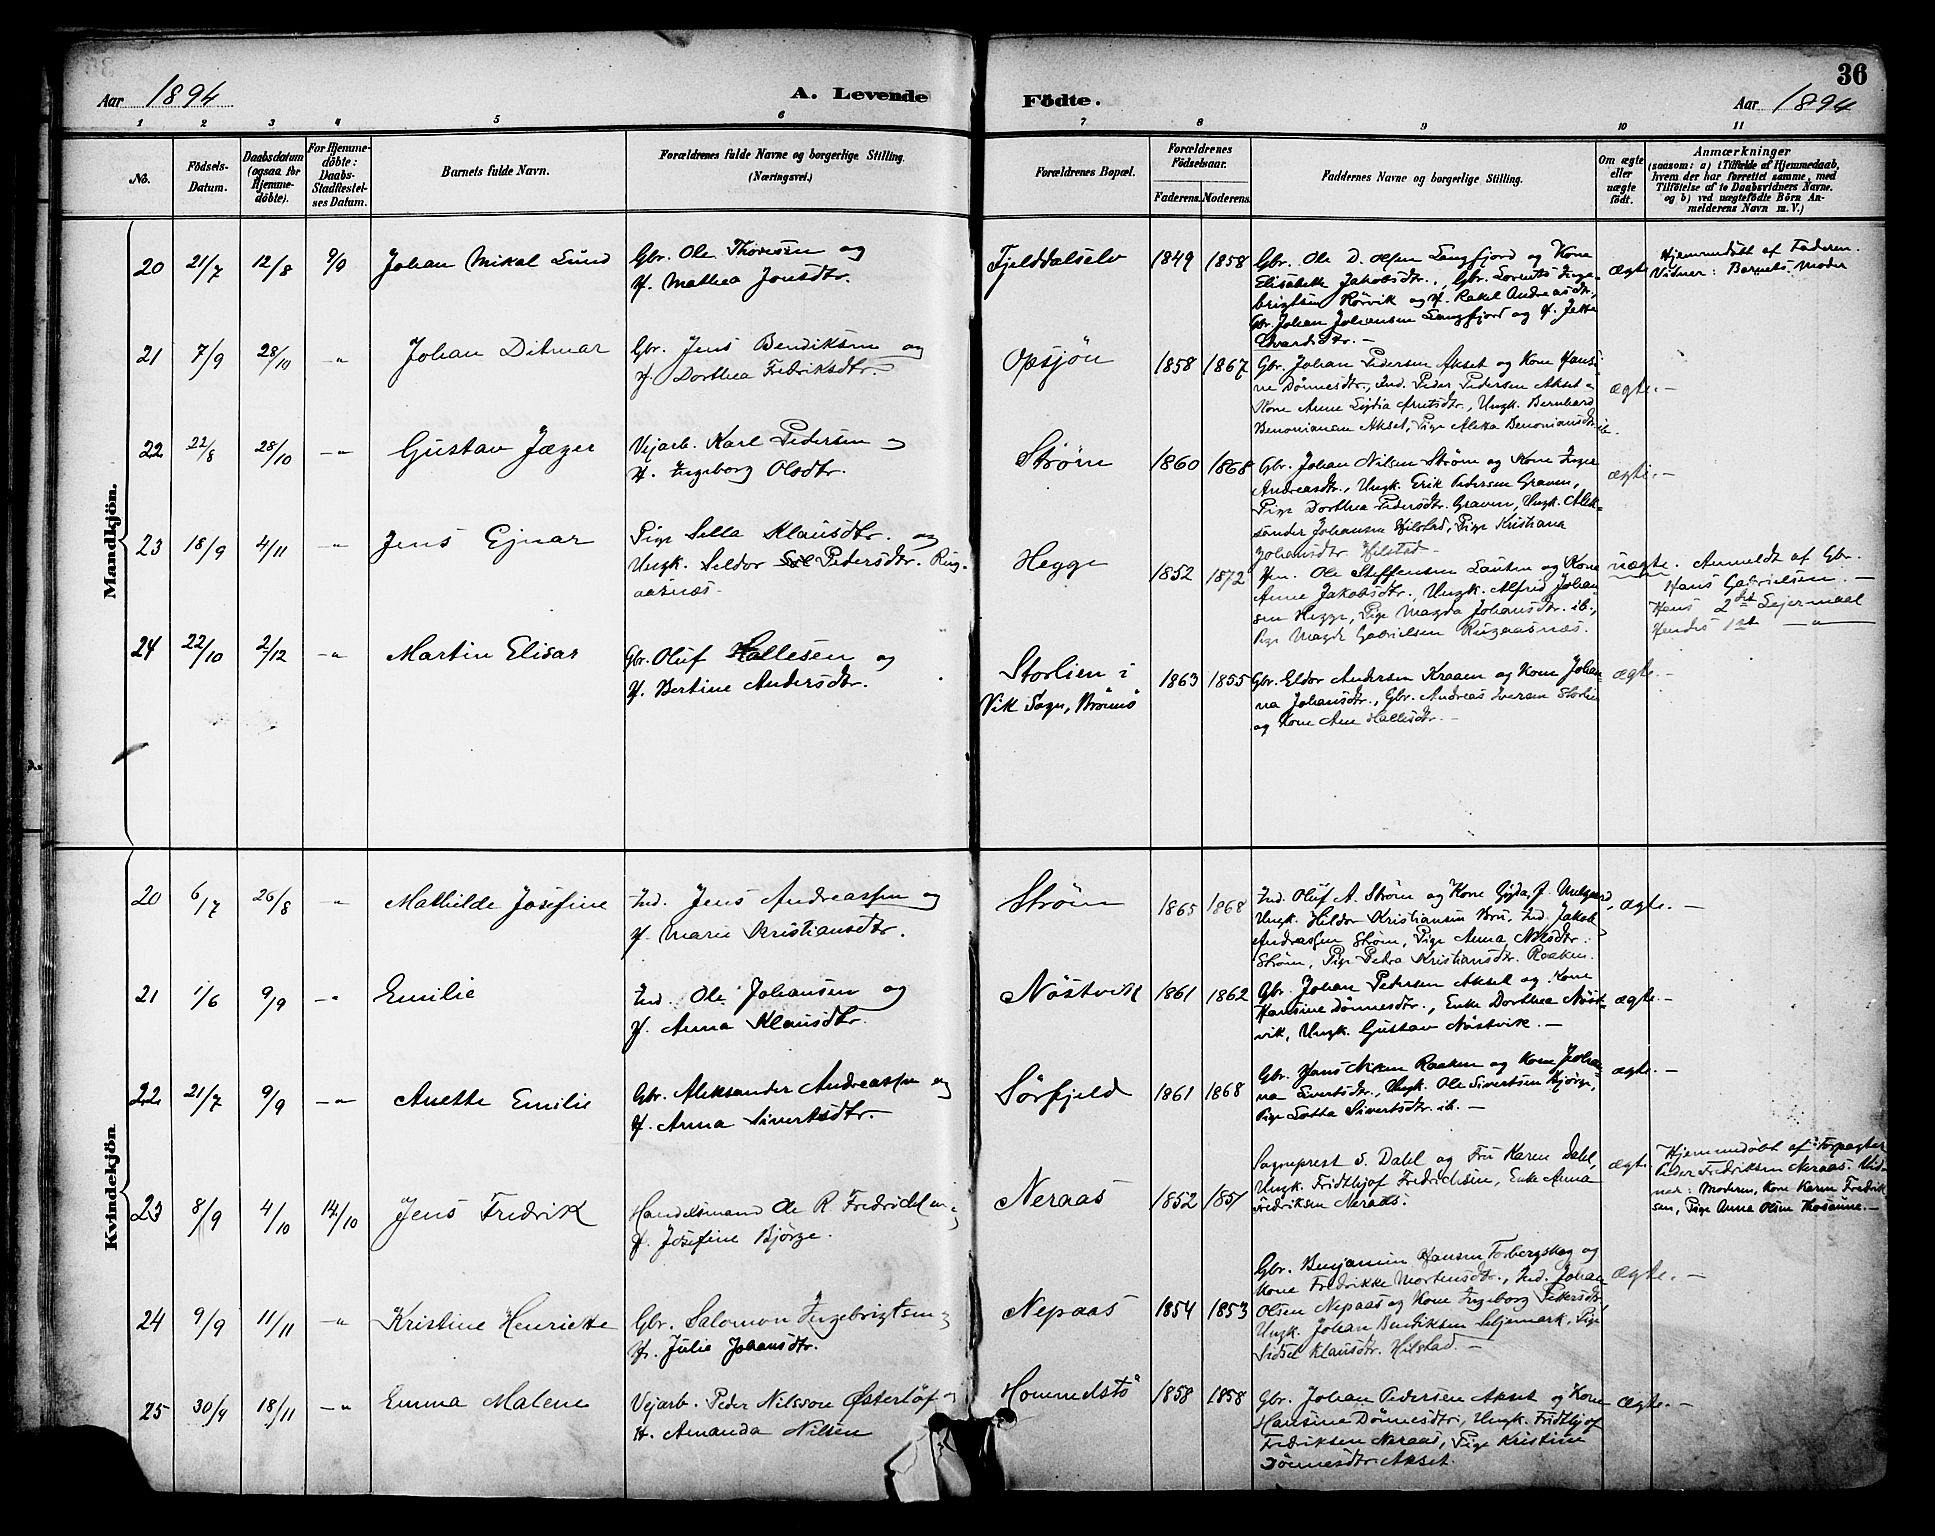 36
Aar 1894
A. Levende Födte.
Aar 1894
1 2 3 4 5 6 7 8 9 10 11
No.
Födsels-Datum.
Daabsdatum (ogsaa for Hjemmedöbte).
For Hjemmedöbte: Daabs-Stadfæstelses Datum.
Barnets fulde Navn.
Forældrenes fulde Navne og borgerlige Stilling.
(Næringsvei.)
Forældrenes Bopæl.
Forældrenes Födselsaar.
Faderens. Moderens.
Faddernes Navne og borgerlige Stilling.
Om ægte eller uægte födt.
Anmærkninger
(saasom: a) i Tilfælde af Hjemmedaab,
hvem der har forrettet samme, med
Tilföielse af to Daabsvidners Navne.
og b) ved uægtefödte Börn An-
melderens Navn m. V.)
Mandkjön.
20 21/7 12/8 9/9 Johan Mikal Lund
Gbr. Ole Thoresen og
H. Mathea Jonsdtr.
Fjelddalselv 1849 1858
Gbr. Ole D. Olsen Langfjord og Kone
Elisabeth Jakobsdtr., Gbr. Lorents Inge-
brigtsen Horvik og H. Rakel Andreasdtr.,
Gbr. Johan Johansen Langfjord og H.
ægte
Hjemmedöbt af Faderen.
Vidner: Barnets Moder
21 7/9 28/10 -"- Johan Ditmar
Gbr. Jens Bendiksen og
H. Dorthea Fredriksdtr.
Opsjön 1858 1867
Gbr. Johan Pedersen Akset og Kone Hansi-
ne Dönnesdtr., Ind. Peder Pedersen Akset -
Kone Anne Lydia Arntsdtr., Ungk. Bernhard
Benoniansen Akset, Pige Benoniansdtr. ib.
ægte. -
22 22/8 28/10 -"- Gustav Jæger
Vejarb. Karl Pedersen og
H. Ingeborg Olsdtr.
Strøm 1860 1868
Gbr. Johan Nilsen Strøm og Kone Inger
Andreasdtr., Ungk. Erik Pedersen Graven,
Pige Dorthea Pedersdtr. Graven, Ungk. Alek-
sander Johansen Hilstad, Pige Kristiana
Johansdtr. Hilstad. -
ægte. -
23 18/9 4/11 -"- Jens Ejnar
Pige Sella Klausdtr. og
Ungk. Seldor Pedersdtr. Rug-
aasnæs. -
Hegge 1852 1872
Ole Steffensen og Kone
Anne Jakobsdtr., Ungk. Alfred Johan-
sen Hegge, Pige Magda Johansdtr. ib.,
Pige Magda Gabrielsen Rugaasnæs.
uægte.
Anmeldt af Gbr.
Hans Gabrielsen. -
Hans 2det Lejermaal
Hendes 1ste -"-
24 22/10 2/12 -"- Martin Elisar
Gbr. Oluf Hallesen og
H. Bertine Andersdtr.
Storlien i
Vik Sogn, Brönnö
1863 1855
Gbr. Eldor Andersen Kraaen og Kone Johan-
na Johansdtr., Gbr. Andreas Iversen Storlien
og Kone Ane Hallesdtr. -
ægte. -
Kvindekjön
20 6/7 26/8 -"- Mathilde Josefine
Ind. Jens Andreassen og
H. Marie Kristiansdtr.
Strøm 1865 1868
Ind. Oluf A. Strøm og Kone Gyda J.
Ungk. Hildor Kristiansen Bru, Ind. Jakob
Andreassen Strøm, Pige Anna Nilsdtr.
Strøm, Pige Petra Kristiansdtr. Raaken.
ægte. -
21 1/6 9/9 -"- Emilie
Ind. Ole Johansen og
H. Anna Klausdtr.
Nöstvik 1861 1862
Gbr. Johan Pedersen Akset og Kone
Hansine Dönnesdtr., Enke Dorthea Nöst-
vik, Ungk. Gustav Nöstvik. -
ægte. -
22 21/7 9/9 -"- Anette Emilie
Gbr. Aleksander Andreassen og
H. Anna Sivertsdtr. -
Sörfjeld 1861 1868
Gbr. Hans Raaken og Kone Johan-
na Sivertsdtr., Ungk. Ole Sivertsen
Pige Lotta Sivertsdtr. ib. -
ægte. -
23 8/9 4/10 14/10 Jens Fredrik
Handelsmand Ole R. Fredriksen og
H. Josefine Bjørge.
Neraas 1852 1851
Sogneprest S. Dahl og Fru Karen Dahl,
Ungk. Fridthjof Fredriksen, Enke Anna
Fredriksen Neraas.
ægte
Hjemmedöbt af Forpagter
Peder Fredriksen Neraas. Vid-
ner: Moderen, Kone Karen Fredrik-
sen, Pige Anna Olsen -
24 9/9 11/11 -"- Kristine Henriette
Gbr. Salomon Ingebrigtsen og
H. Julie Johansdtr.
Nepaas 1854 1853
Gbr. Benjamin Hansen Torbergskog og
Kone Fredrikke Mortensdtr., Ind. Johan
Olsen Nepaas og Kone Ingeborg Petersdtr.,
Ungk. Johan Bendiksen Seljemark, Pige
Sidsel Klausdtr. Hilstad. -
ægte. -
25 30/9 18/11 -"- Emma Malene
Vejarb. Peder Nilsson Østerlöf og
H. Amanda Nilsen
Hommelstö 1858 1858
Gbr. Johan Pedersen Akset og Kone
Hansine Dönnesdtr., Ungk. Fridthjof
Fredriksen Neraas, Pige Kristine
Dönnesdtr. Akset.
ægte. -